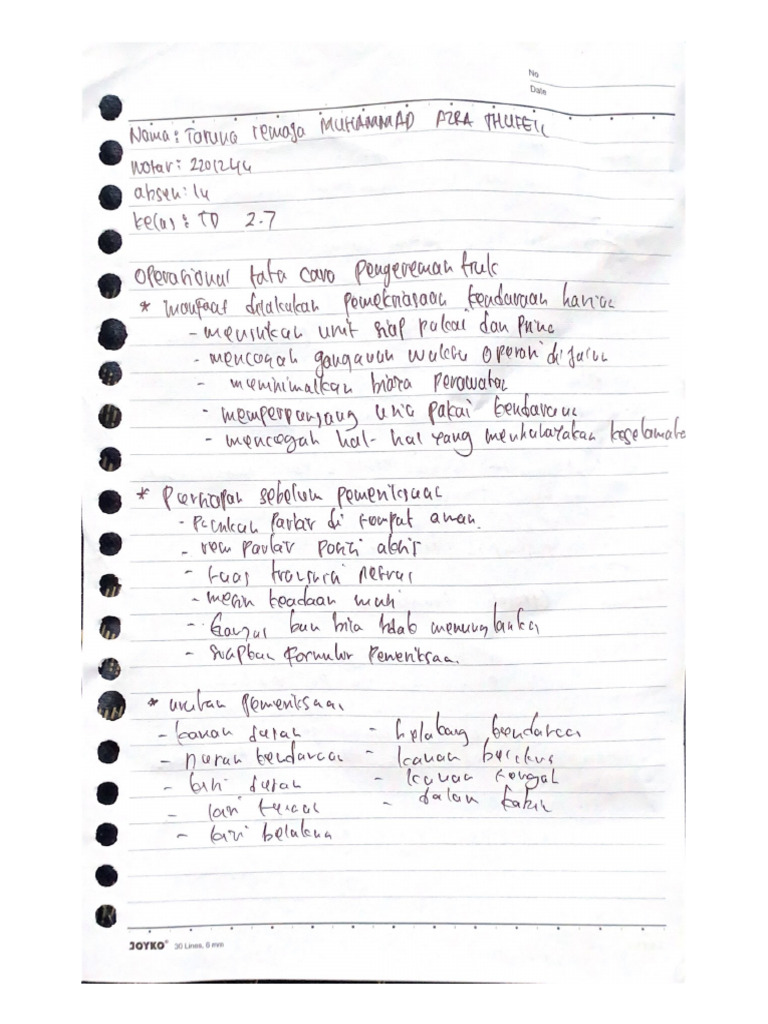 No
Date
Nama : Taruna remaja MUHAMMAD AZRA THUFEIL
notar : 2201244
absen : 14
kelas : TD 2.7
Operasional tata cara pengereman truk
* manfaat dilakukan pemeriksaan kendaraan harian
- memastikan unit siap pakai dan prima
- mencegah gangguan waktu operasi di jalan
- meminimalkan biaya perawatan
- memperpanjang usia pakai kendaraan
- mencegah hal-hal yang membahayakan keselamata
* Persiapan sebelum pemeriksaan
- Pastikan Parkir di tempat aman.
- rem parkir posisi aktif
- tuas transmisi netral
- mesin keadaan mati
- Ganjal ban bila tidak memungkinkan
- siapkan formulir pemeriksaan.
* urutan pemeriksaan
- kanan depan - belakang kendaraan
- depan kendaraan - kanan belakang
- kiri depan - kanan tengah
- kiri tengah - dalam kabin
- kiri belakang
JOYKO 30 Lines, 6 mm